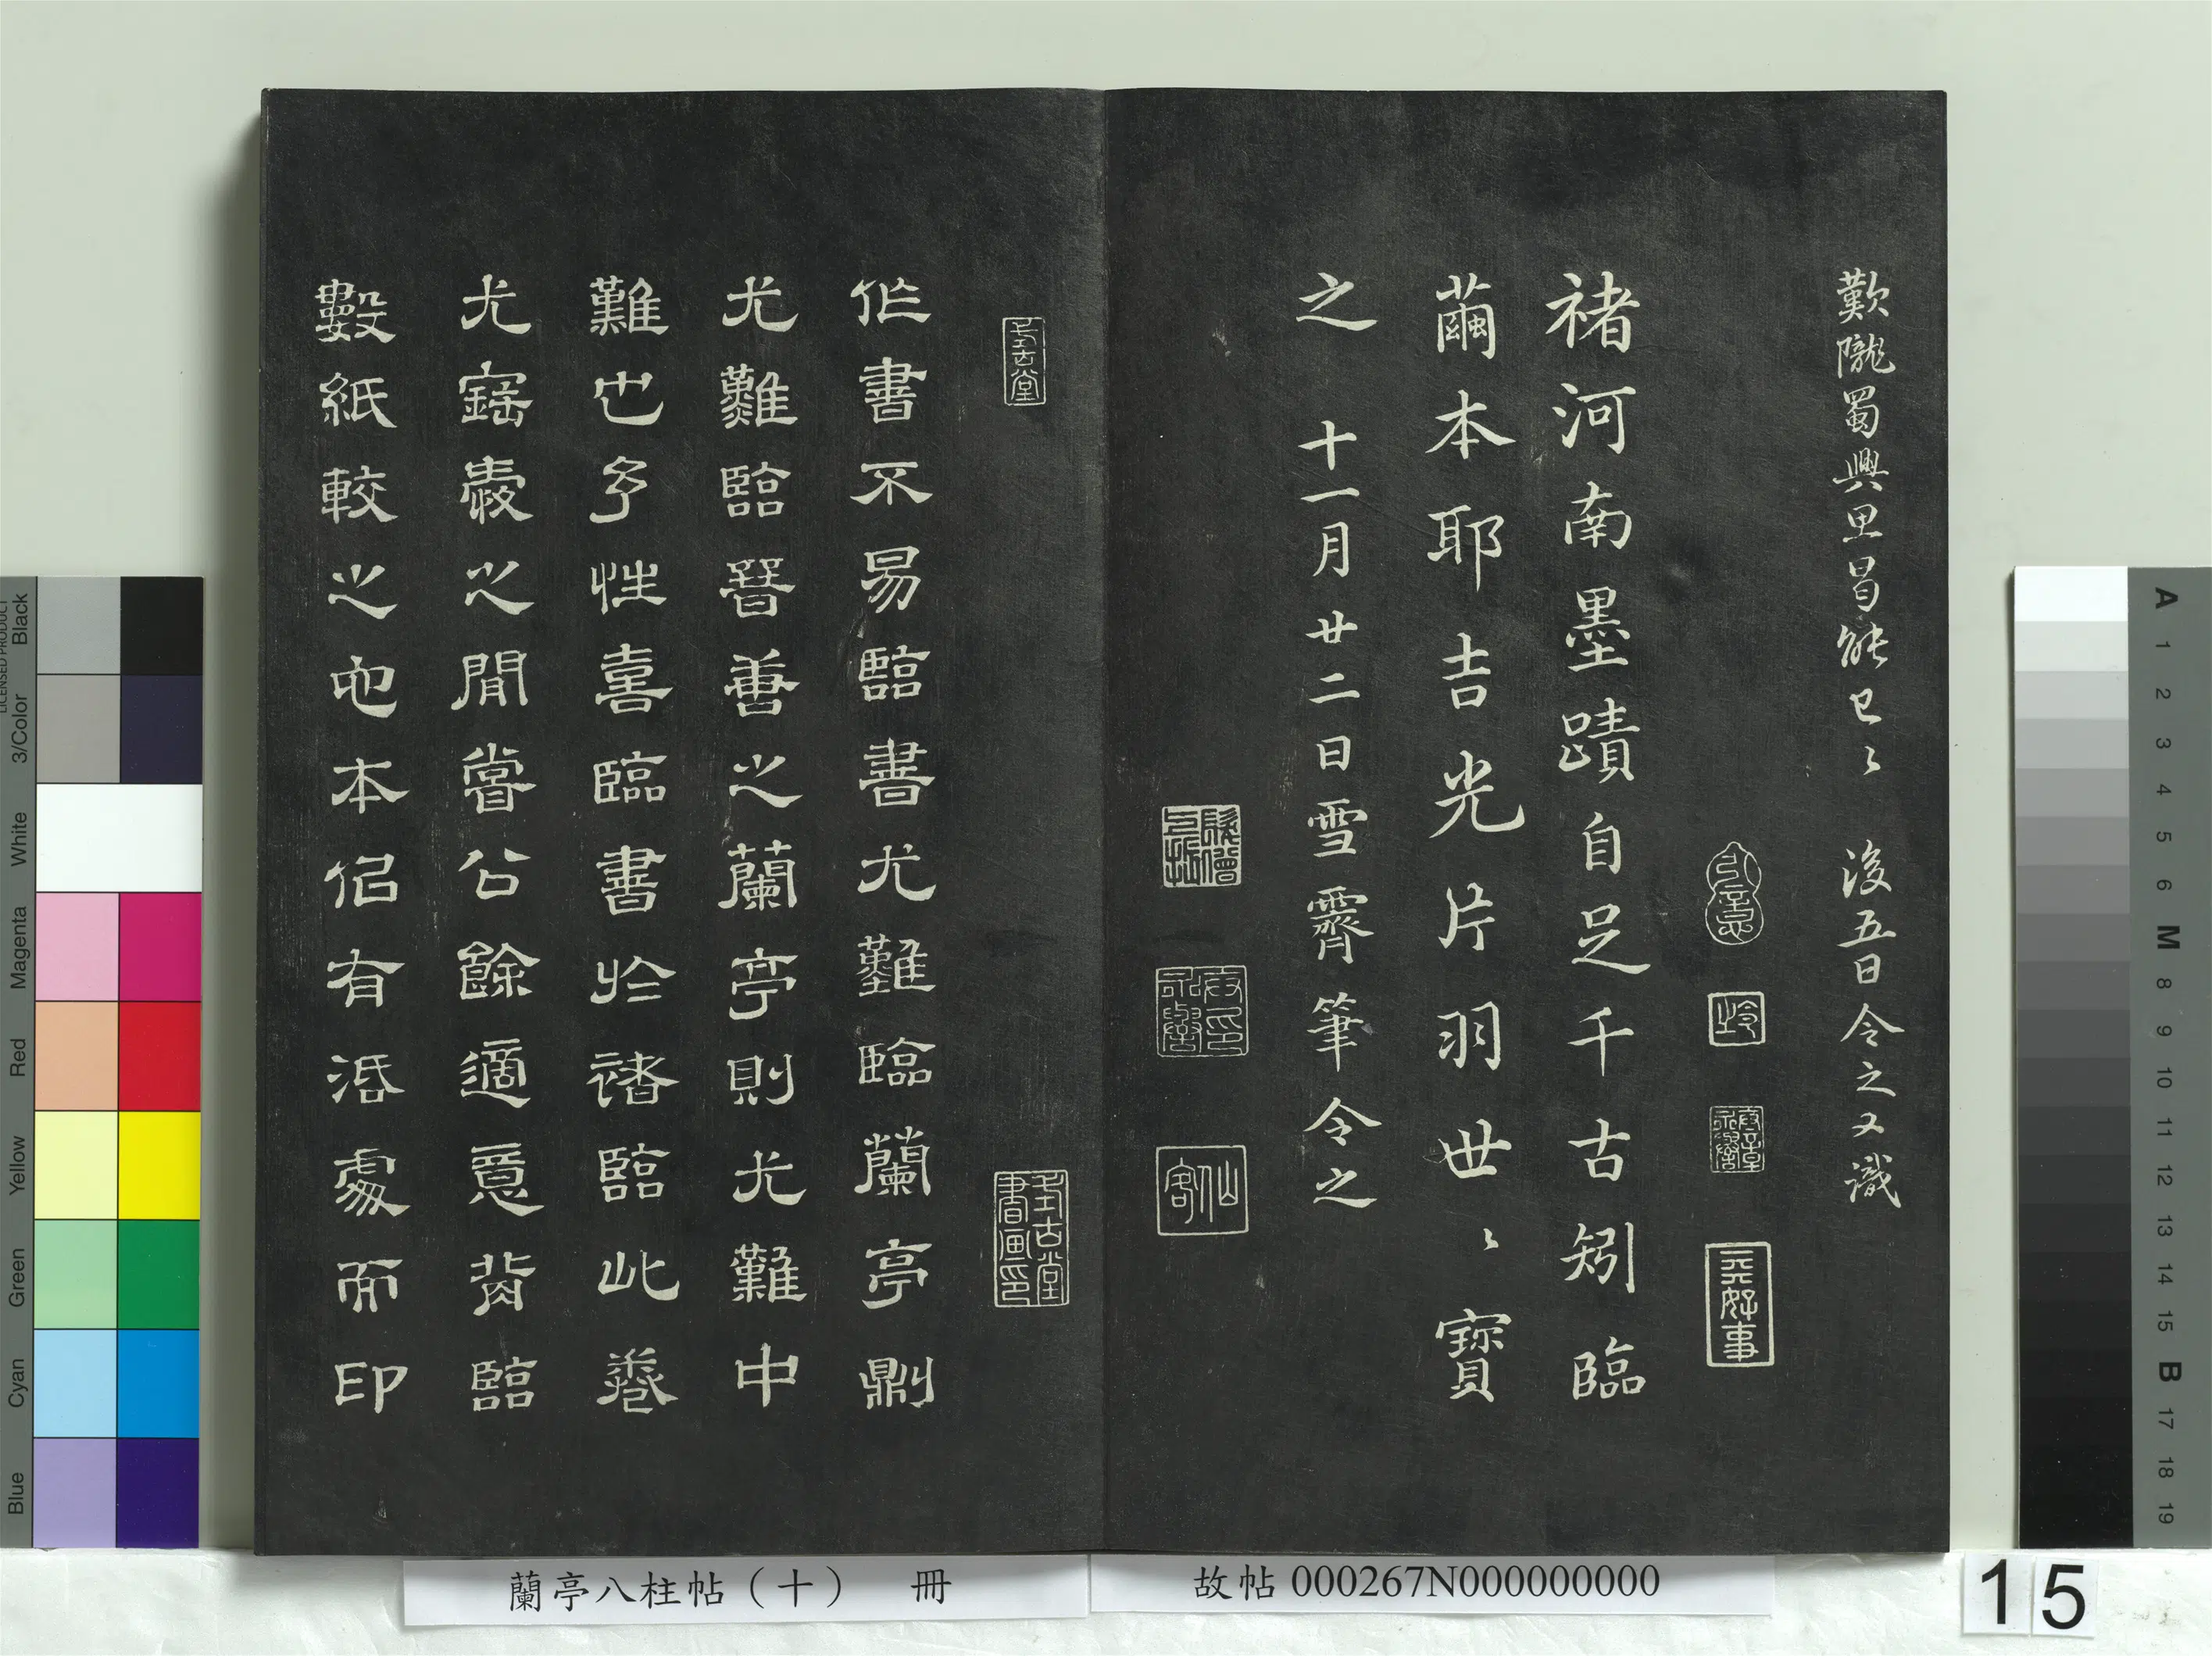 歎隴蜀興思曷能已〻 後五日令之又識
褚河南墨蹟自足千古矧臨
繭本耶吉光片羽世〻寶
之 十一月廿二日雪霽筆令之
仙客
式古堂
式古堂書画印
作書不易臨書尤難臨蘭亭則
尤難臨善之蘭亭則尤難中
難也予性喜臨書於褚臨此卷
尤寶愛之間嘗公餘適意背臨
數紙較之他本佀有活處而印
蘭亭八柱帖（十） 冊
故帖 000267N000000000
15
Black
3/Color
White
Magenta
Red
Yellow
Green
Cyan
Blue
A 1 2 3 4 5 6 M 8 9 10 11 12 13 14 15 B 17 18 19